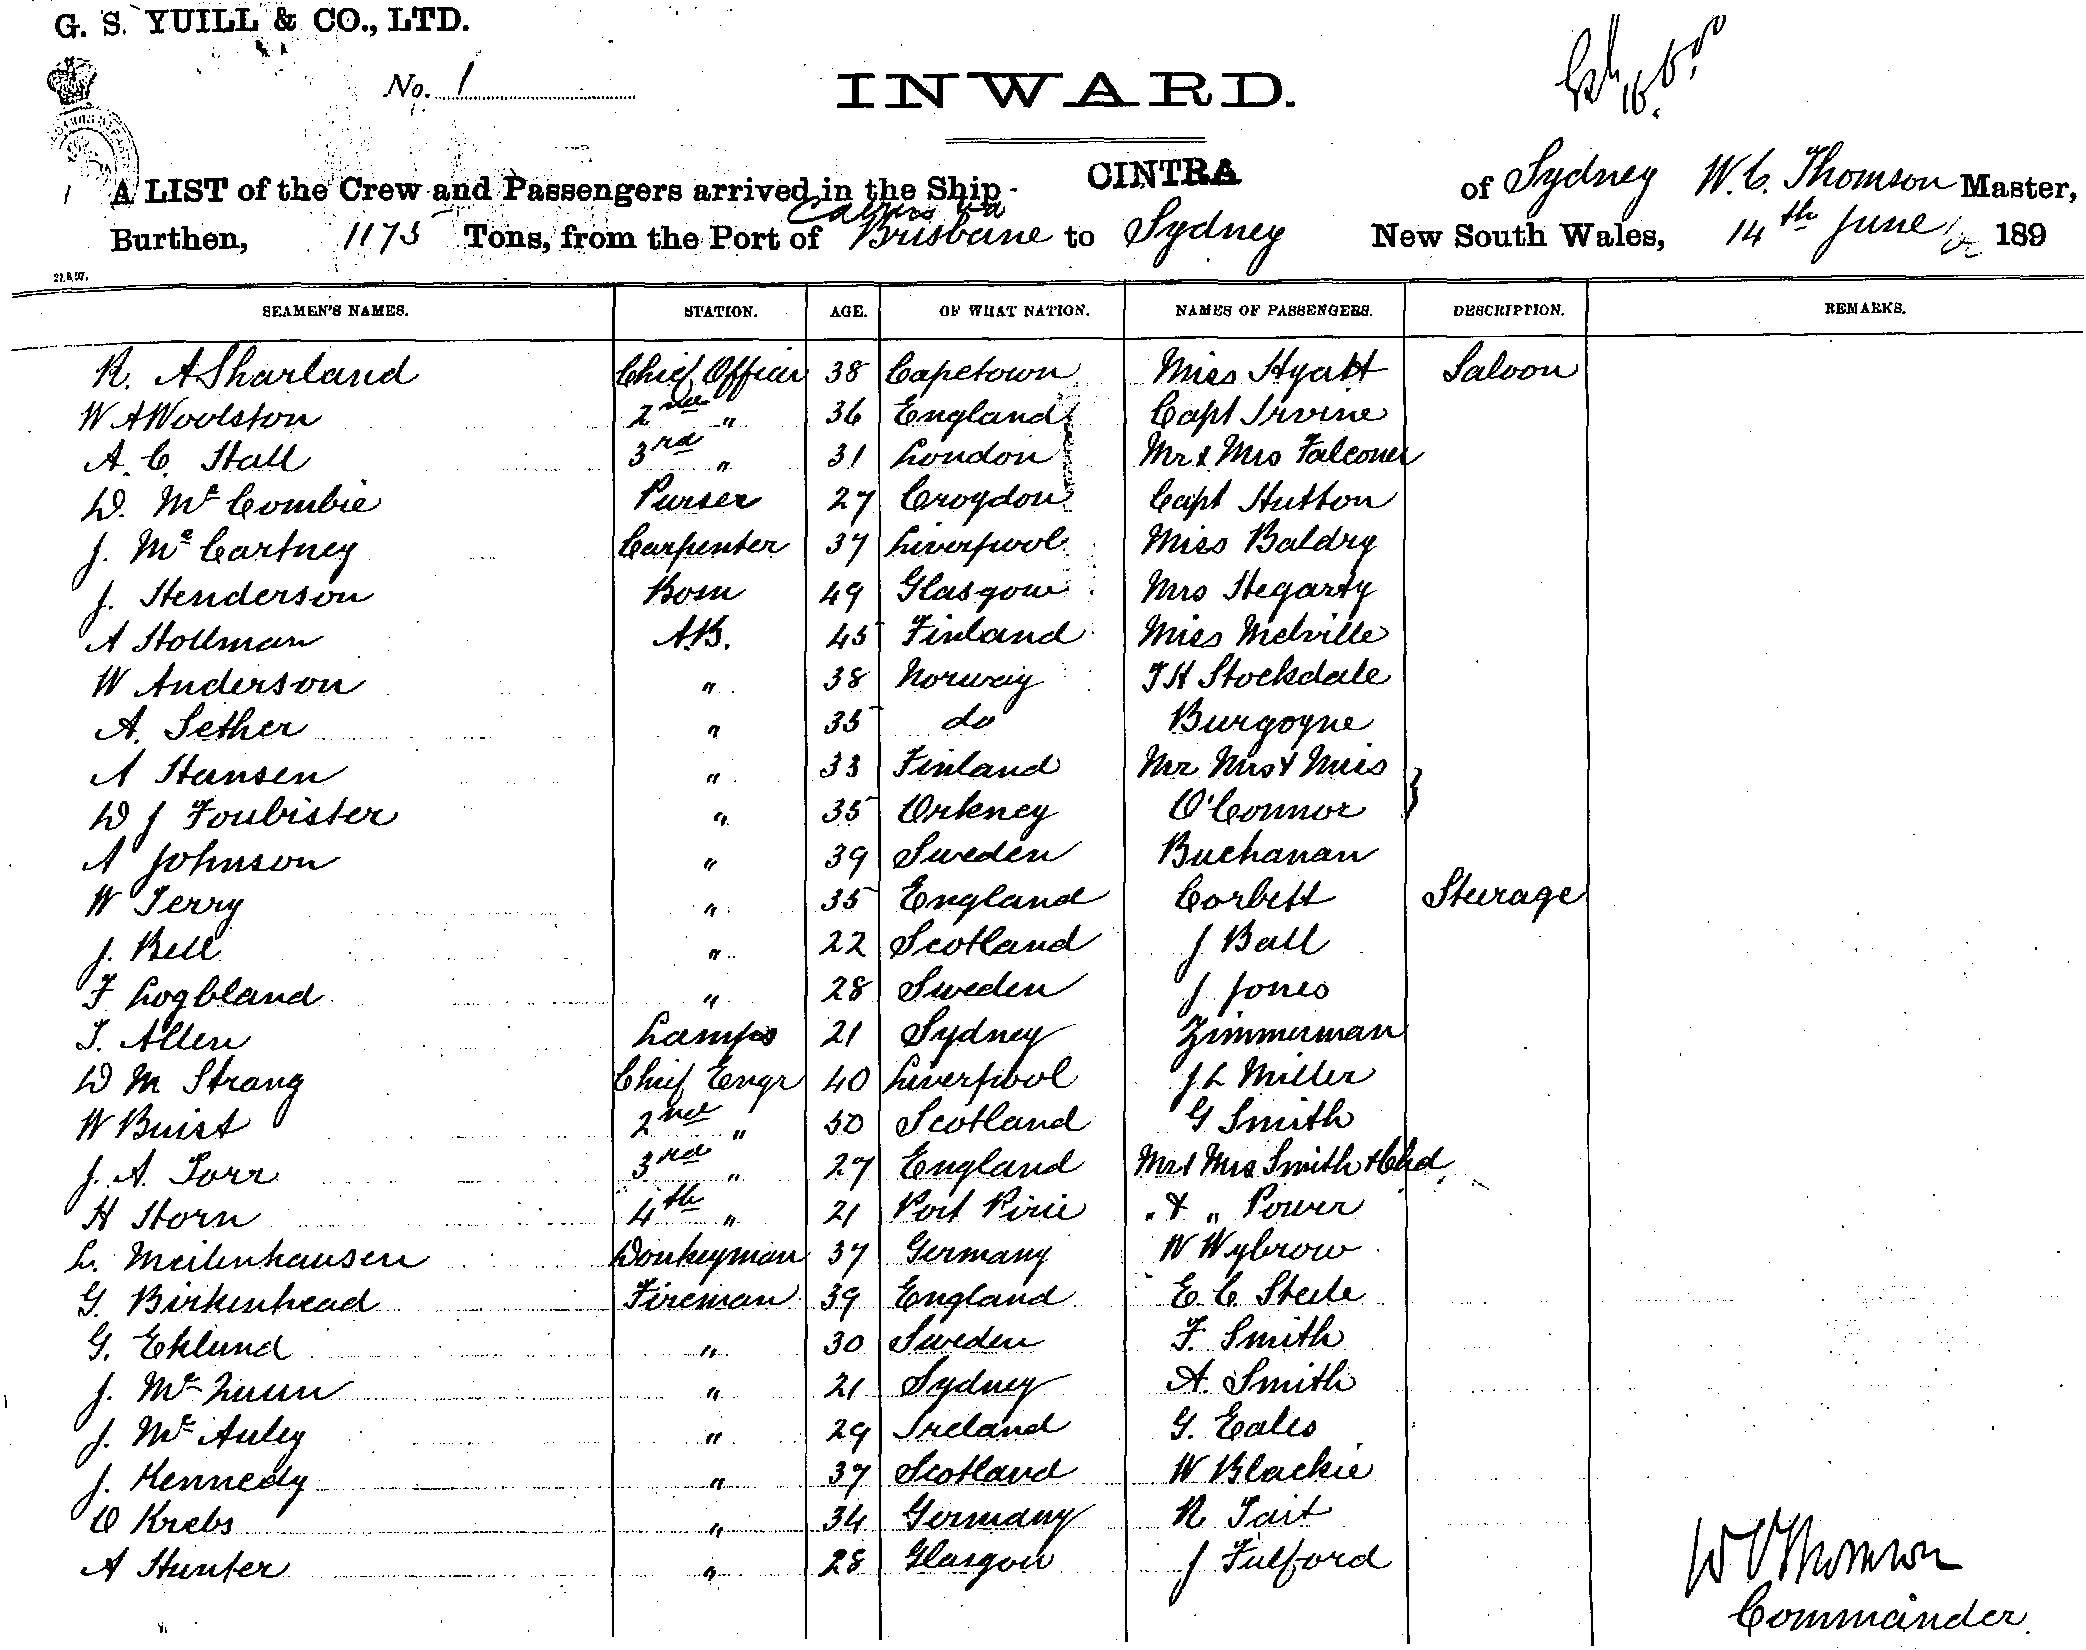 G. S. YUILL & CO., LTD.
No. 1
INWARD.
A LIST of the Crew and Passengers arrived in the Ship CINTRA of Sydney W. C. Thomson Master,
Cairns via
Burthen, 1175 Tons, from the Port of Brisbane to Sydney New South Wales, 14th June 189
SEAMEN'S NAMES. STATION. AGE. OF WHAT NATION. NAMES OF PASSENGERS. DESCRIPTION. REMARKS.
R. A Sharland Chief Officer 38 Capetown Miss Hyatt Saloon
W A Woolston 2nd " 36 England Capt Irvine
A. C. Hall 3rd " 31 London Mr & Mrs Falconer
D. Mc Combie Purser 27 Croydon Capt Hutton
J. Mc Cartney Carpenter 37 Liverpool Miss Baldry
J. Henderson Bosn 49 Glasgow Mrs Hegarty
A Hollman A.B. 45 Finland Miss Melville
W Anderson " 38 Norway T H Stocksdale
A. Sether " 35 do Burgoyne
A Hansen " 33 Finland Mr Mrs & Miss
D J Foubister " 35 Orkney O'Connor
A Johnson " 39 Sweden Buchanan
W Terry " 35 England Corbett Steerage
J. Bell " 22 Scotland J Ball
F Logbland " 28 Sweden J Jones
T. Allen Lamps 21 Sydney Zimmerman
D M Strang Chief Engr 40 Liverpool J L Miller
W Buist 2nd " 30 Scotland G Smith
J. A. Torr 3rd " 27 England Mr & Mrs Smith & Chd
H Horn 4th " 21 Port Pirie " & " Power
L. Meilenhausen Donkeyman 37 Germany W Wybrow
G. Birkenhead Fireman 39 England E. C Steele
G. Eklund " 30 Sweden F. Smith
J. Mc " 21 Sydney A. Smith
J. Mc Auley " 29 Ireland G. Eales
J. Kennedy " 37 Scotland W Blackie
O Krebs " 34 Germany R Tait
A Hunter " 28 Glasgow J Fulford
W C Thomson
Commander.